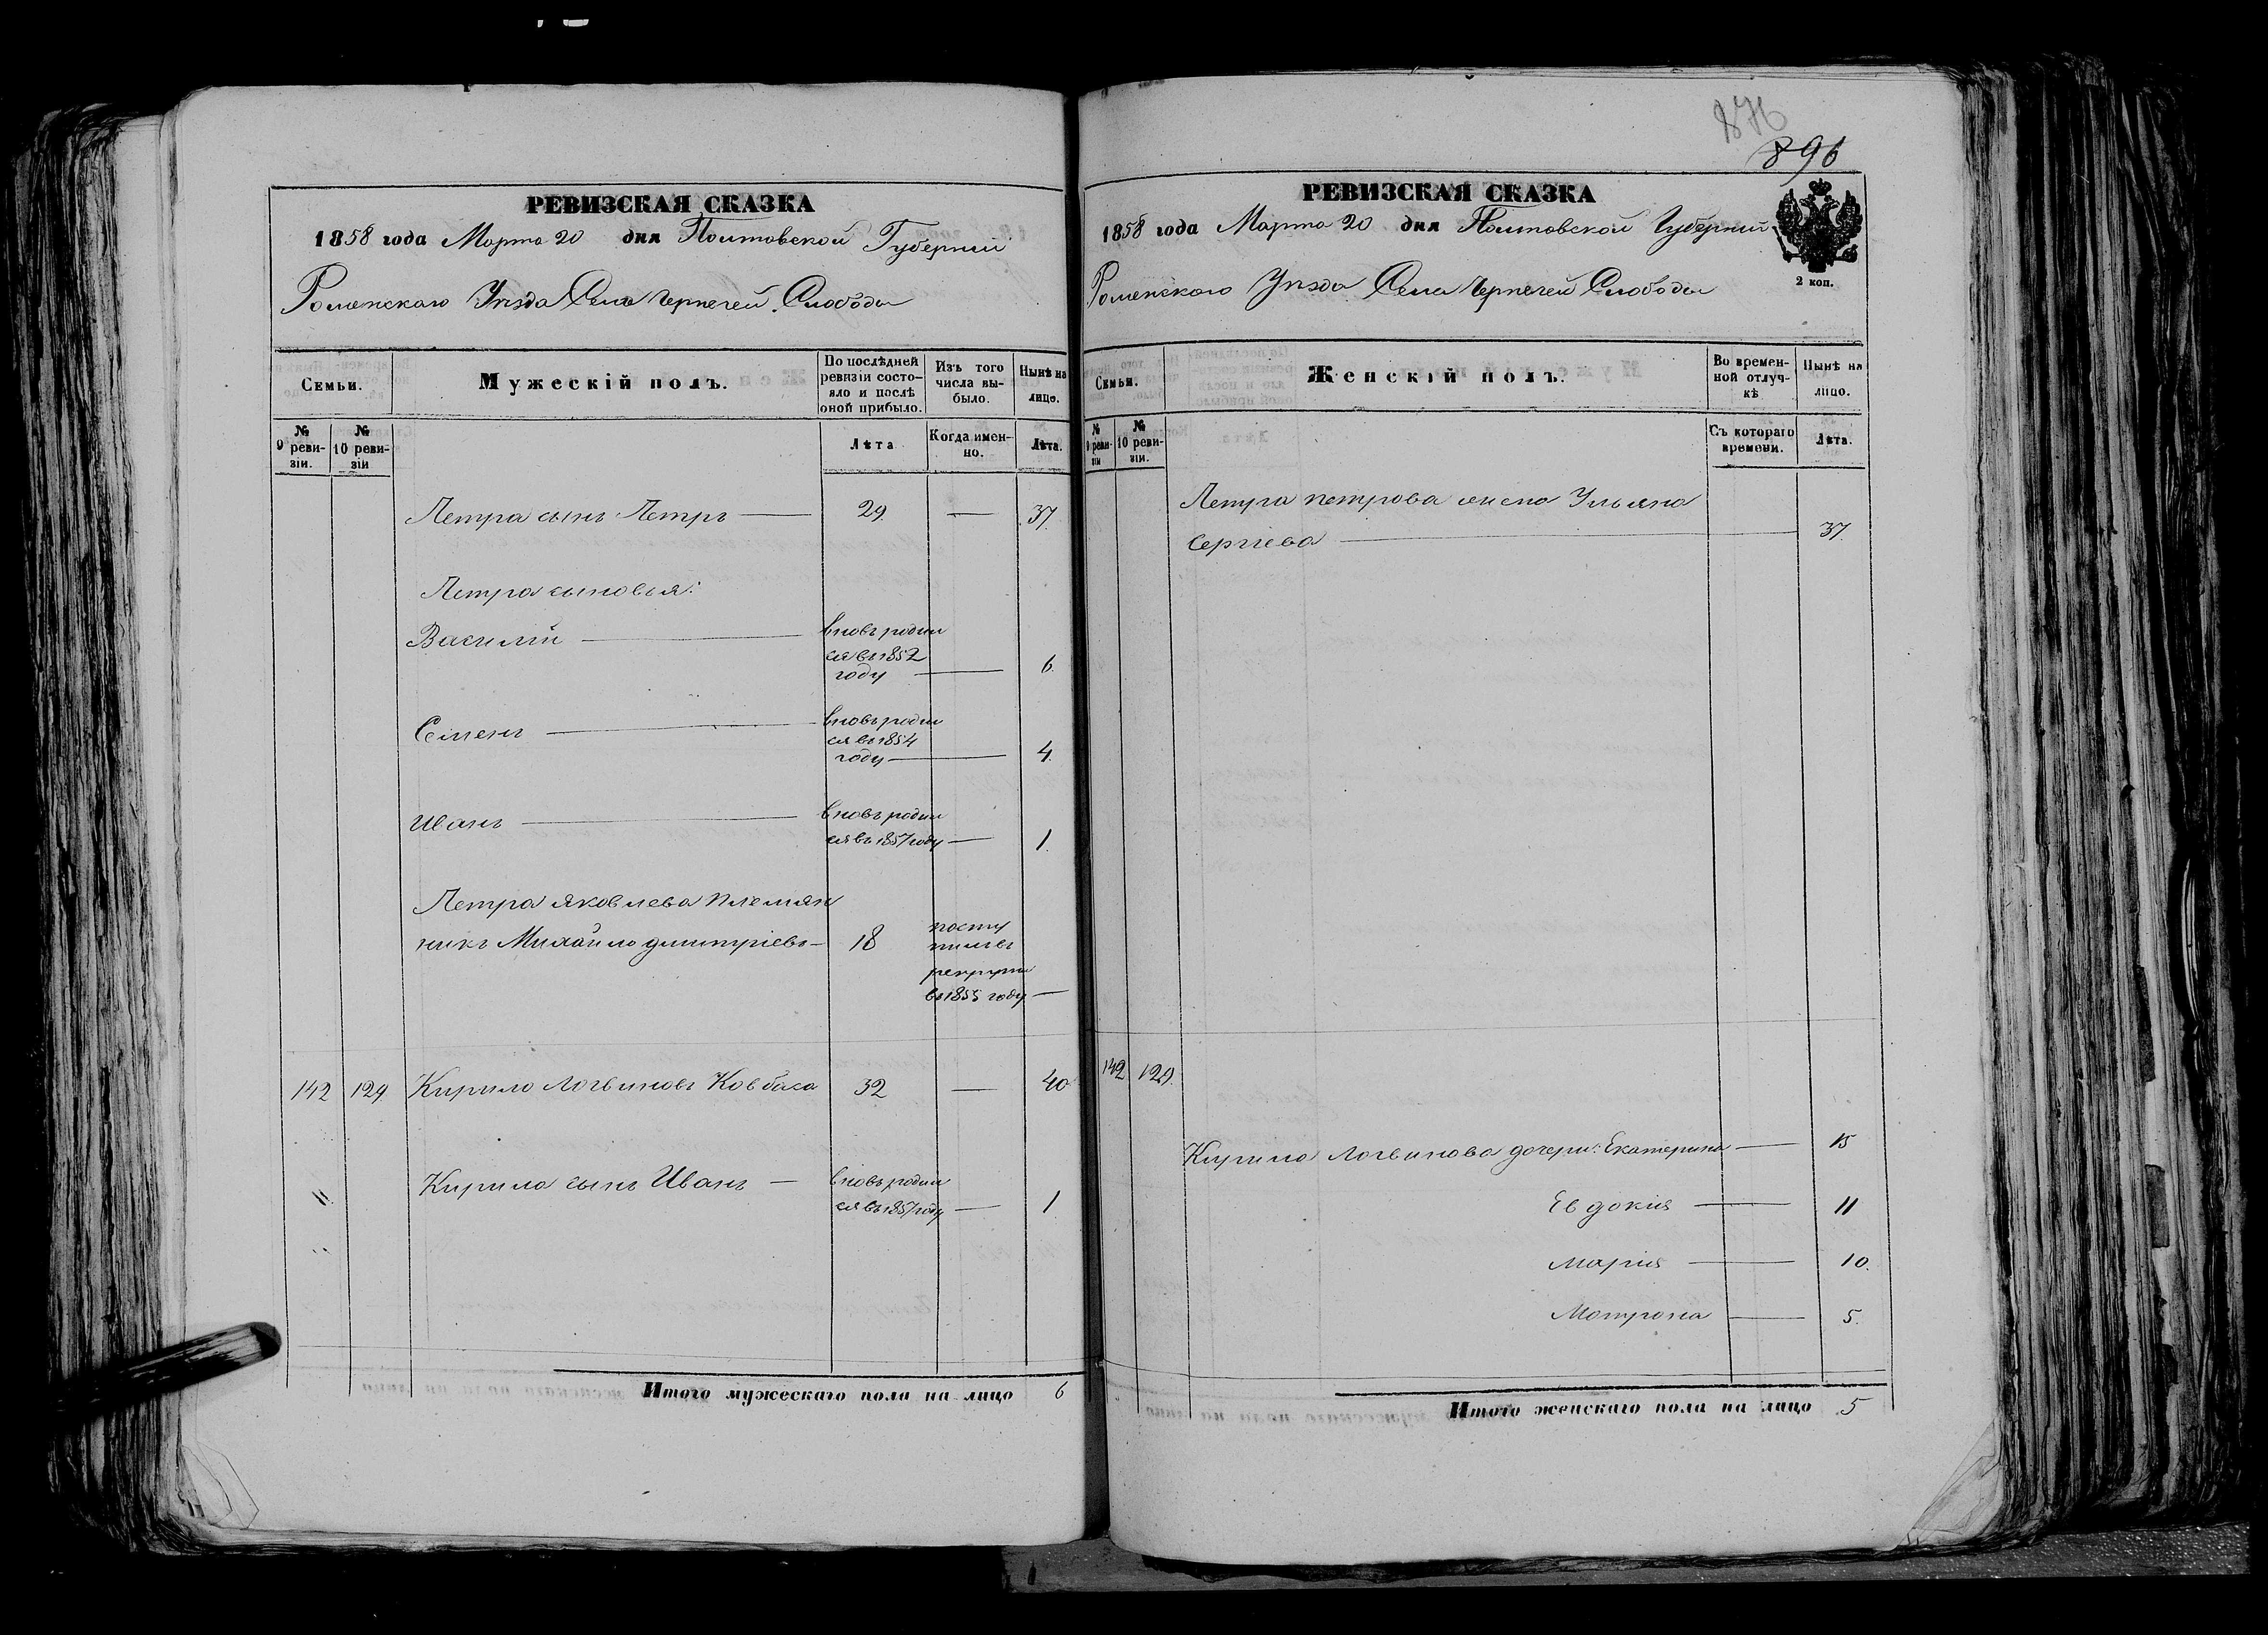 876
896
РЕВИЗСКАЯ СКАЗКА
1858 года Марта 20 дня Полтавской Губерніи
Роменскаго Уѣзда Села Чернечей Слободы
Семьи.
Мужескій полъ.
По послѣдней ревизіи состояло и послѣ оной прибыло.
Изъ того числа выбыло.
Нынѣ на лицо.
№ 9 ревизіи.
№ 10 ревизіи
Лѣта
Когда именно.
Лѣта.
Петра сынъ Петръ — 29. — 37.
Петра сыновья:
Василій — вновь родил
ся въ 1852
году — 6.
Семенъ — вновь родил
ся въ 1854
году — 4.
Иванъ — вновь родил
ся въ 1857 году — 1.
Петра Яковлева племян
никъ Михайло Дмитріевъ — 18
посту
пилъ въ
рекруты
въ 1855 году —
142 129 Кирило Логвиновъ Ковбаса 32 — 40
Кирила сынъ Иванъ — вновь родил
ся въ 1857 году — 1
Итого мужескаго пола на лицо 6
РЕВИЗСКАЯ СКАЗКА
1858 года Марта 20 дня Полтавской Губерніи
2 коп.
Роменскаго Уѣзда Села Чернечей Слободы
Семьи.
Женскій полъ.
Во временной отлучкѣ
Нынѣ на лицо.
№ 9 ревизіи
№ 10 ревизіи.
Съ котораго времени.
Лѣта.
Петра Петрова жена Ульяна
Сергіева — 37.
142 129.
Кирила Логвинова дочери: Екатерина — 15
Евдокія — 11
Марія — 10.
Мотрона — 5.
Итого женскаго пола на лицо 5